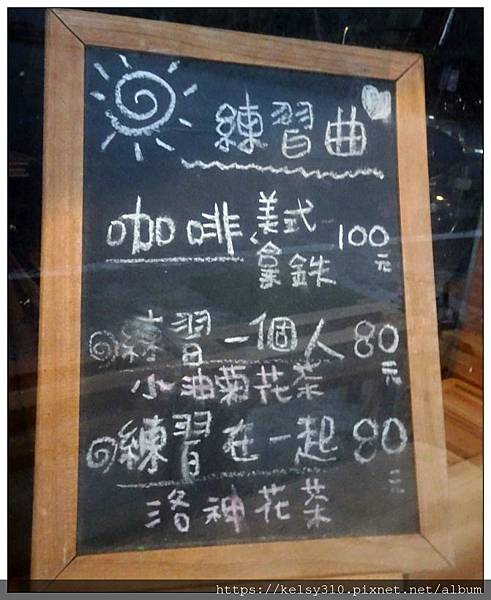 練習曲
咖啡、美式
拿鉄 100元
練習一個人 80元
小油菊花茶
練習在一起 80元
洛神花茶
https://kelsy310.pixnet.net/album